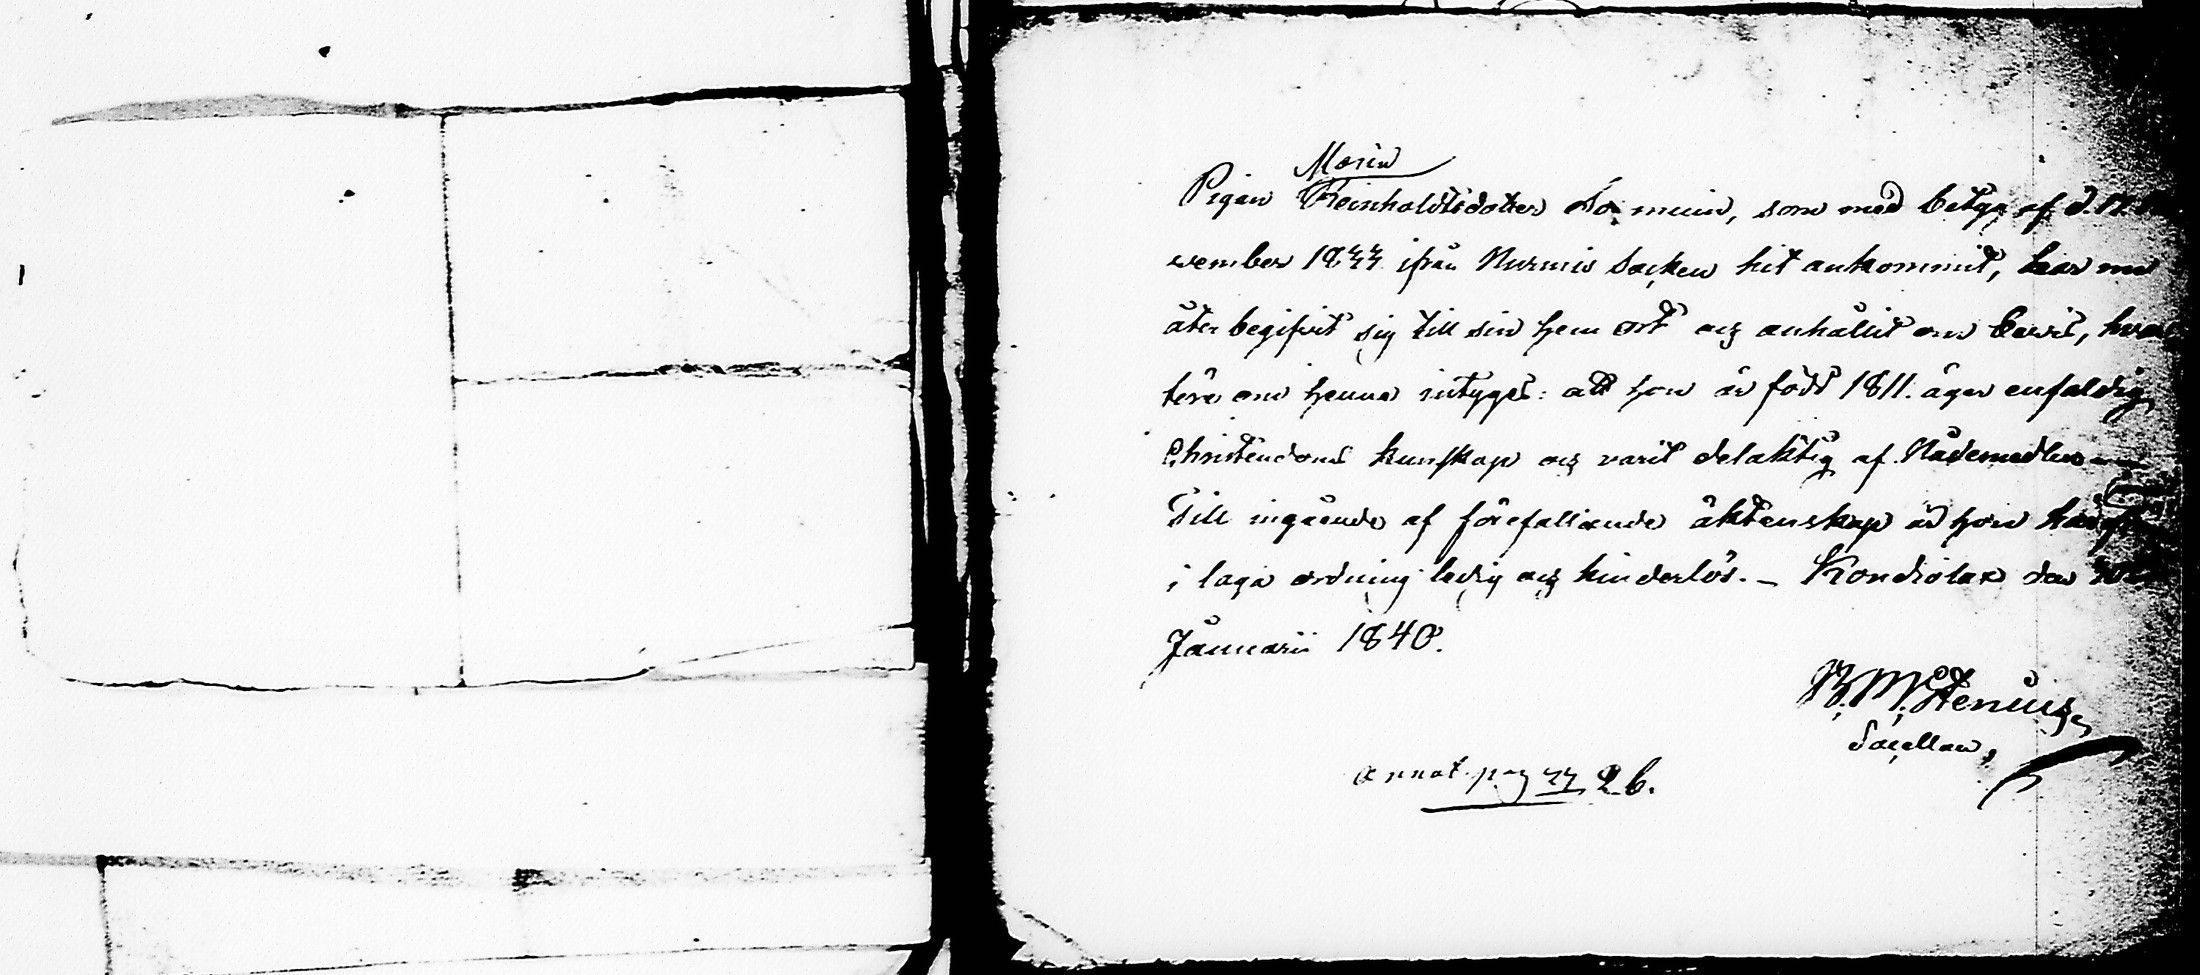 Maria
Pigan Reinholdtsdotter som med betyg af d. 17.
vember 1833 ifrån Nurmis Socken hit ankommit, har nu
åter begifvit sig till sin hem ort och anhållit om bevis,
om henne intygas: att hon är född 1811. äger enfaldig
Christendoms kunskap och varit delaktig af Nådemedlen
Till ingående af förefallande äktenskap är hon
i laga ordning ledig och hinderlös. – Kondiolax den
Januarii 1840.
Stenius
Sacellan,
annot. pag 33 26.